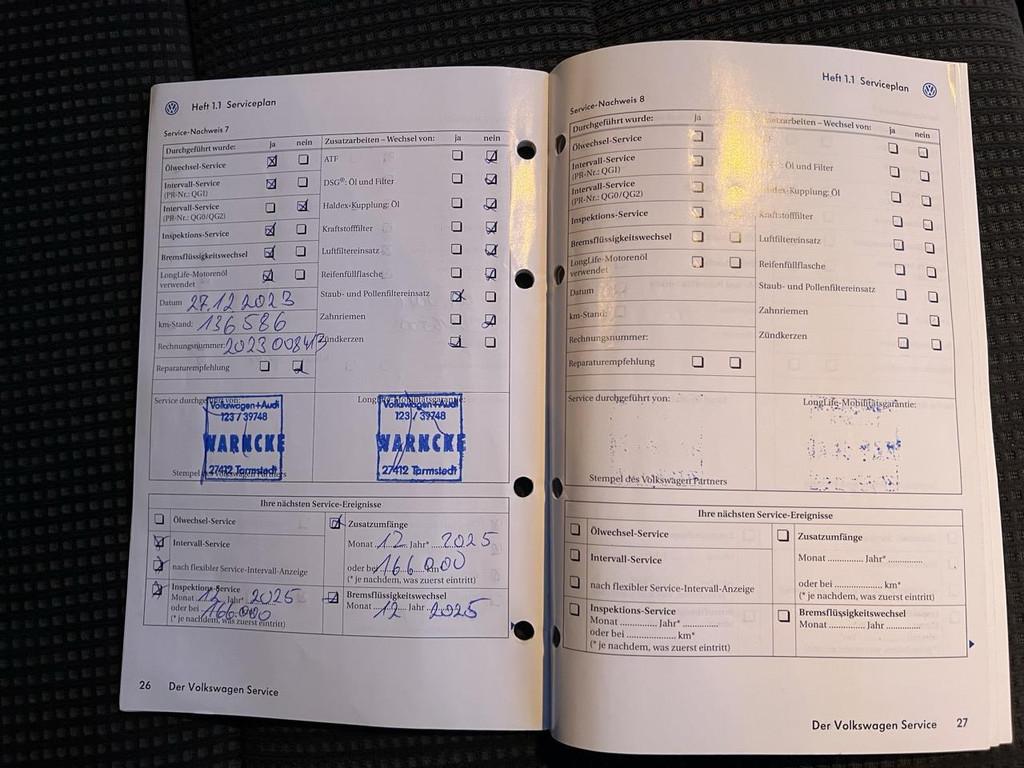 Heft 1.1 Serviceplan
Service-Nachweis 7
Durchgeführt wurde: ja nein
Ölwechsel-Service
Intervall-Service
(PR-Nr.: QG1)
Intervall-Service
(PR-Nr.: QG0/QG2)
Inspektions-Service
Bremsflüssigkeitswechsel
LongLife-Motorenöl
verwendet
Datum 27.12.2023
km-Stand: 136 586
Rechnungsnummer:
Reparaturempfehlung
Zusatzarbeiten – Wechsel von: ja nein
ATF
DSG®: Öl und Filter
Haldex-Kupplung: Öl
Kraftstofffilter
Luftfiltereinsatz
Reifenfüllflasche
Staub- und Pollenfiltereinsatz
Zahnriemen
Zündkerzen
Service durchgeführt von:
Volkswagen+Audi
123 / 39748
WARNCKE
27412 Tarmstedt
Stempel des Volkswagen Partners
LongLife-Mobilitätsgarantie:
Volkswagen+Audi
123 / 39748
WARNCKE
27412 Tarmstedt
Ihre nächsten Service-Ereignisse
Ölwechsel-Service
Intervall-Service
nach flexibler Service-Intervall-Anzeige
Inspektions-Service
Monat 12 Jahr* 2025
oder bei 166.000
(* je nachdem, was zuerst eintritt)
Zusatzumfänge
Monat 12 Jahr* 2025
oder bei 166.000 km*
(* je nachdem, was zuerst eintritt)
Bremsflüssigkeitswechsel
Monat 12 Jahr 2025
26 Der Volkswagen Service
Heft 1.1 Serviceplan
Service-Nachweis 8
Durchgeführt wurde: ja
Ölwechsel-Service
Intervall-Service
(PR-Nr.: QG1)
Intervall-Service
(PR-Nr.: QG0/QG2)
Inspektions-Service
Bremsflüssigkeitswechsel
LongLife-Motorenöl
verwendet
Datum
km-Stand:
Rechnungsnummer:
Reparaturempfehlung
Zusatzarbeiten – Wechsel von: ja nein
Öl und Filter
Haldex-Kupplung: Öl
Kraftstofffilter
Luftfiltereinsatz
Reifenfüllflasche
Staub- und Pollenfiltereinsatz
Zahnriemen
Zündkerzen
Service durchgeführt von:
Stempel des Volkswagen Partners
LongLife-Mobilitätsgarantie:
Ihre nächsten Service-Ereignisse
Ölwechsel-Service
Intervall-Service
nach flexibler Service-Intervall-Anzeige
Inspektions-Service
Monat ............ Jahr* ............
oder bei ............... km*
(* je nachdem, was zuerst eintritt)
Zusatzumfänge
Monat ............ Jahr* ............
oder bei ............... km*
(* je nachdem, was zuerst eintritt)
Bremsflüssigkeitswechsel
Monat ............ Jahr ............
Der Volkswagen Service 27